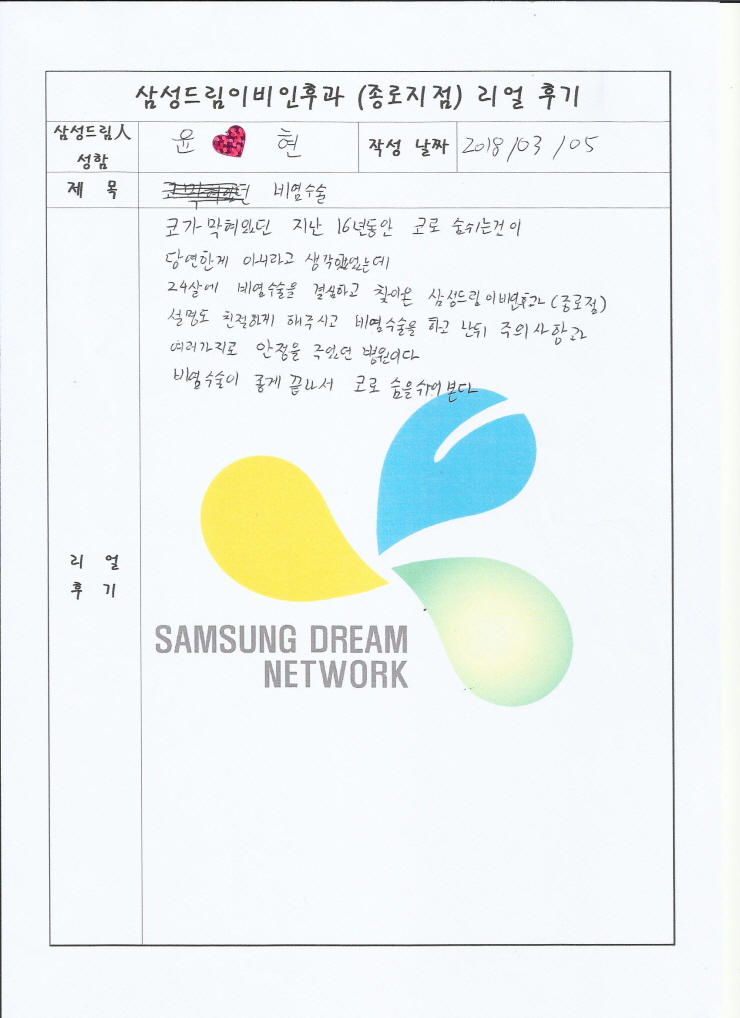 삼성드림이비인후과 (종로지점) 리얼 후기
삼성드림人 성함
윤 현
작성 날짜
2018/03/05
제 목
비염수술
코가 막혀왔던 지난 16년동안 코로 숨쉬는건이
당연한게 아니라고 생각했었는데
24살에 비염수술을 결심하고 찾아온 삼성드림이비인후과(종로점)
설명도 친절하게 해주시고 비염수술을 하고 난뒤 주의사항과
여러가지로 안정을 주었던 병원이다
비염수술이 좋게 끝나서 코로 숨을 쉬어본다
리 얼
후 기
SAMSUNG DREAM
NETWORK